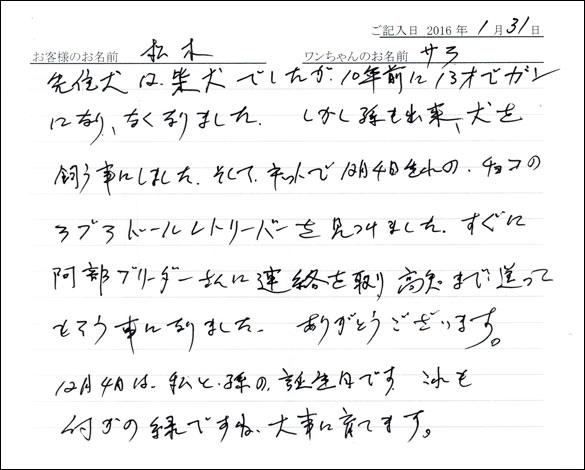 ご記入日 2016 年 1 月 31 日
お客様のお名前 松木 ワンちゃんのお名前 サラ
先住犬は、柴犬でしたが、10年前に13才でガン
になり、なくなりました。 しかし孫も出来、犬を
飼う事にしました。そして、ネットで12月4日生れの、チョコの
ラブラドールレトリーバーを見つけました。すぐに
阿部ブリーダーさんに連絡を取り高知まで送って
もらう事になりました。 ありがとうございます。
12月4日は、私と、孫の、誕生日です これも
何かの縁ですね、大事に育てます。